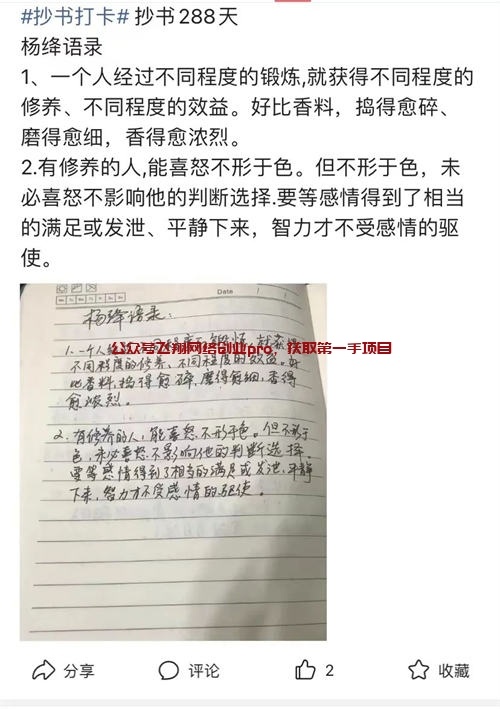 #抄书打卡# 抄书288天
杨绛语录
1、一个人经过不同程度的锻炼,就获得不同程度的
修养、不同程度的效益。好比香料，捣得愈碎、
磨得愈细，香得愈浓烈。
2.有修养的人,能喜怒不形于色。但不形于色，未
必喜怒不影响他的判断选择.要等感情得到了相当
的满足或发泄、平静下来，智力才不受感情的驱
使。
Date
杨绛语录：
1.一个人经
同程度的锻炼，就获得
公众号飞翔网络创业pro，获取第一手项目
不同程度的修养、不同程度的效益。好
比香料,捣得愈碎,磨得愈细,香得
愈浓烈。
2.有修养的人,能喜怒不形于色。但不形于
色,未必喜怒不影响他的判断选择.
要等感情得到了相当的满足或发泄、平静
下来,智力才不受感情的驱使。
分享
评论
2
收藏